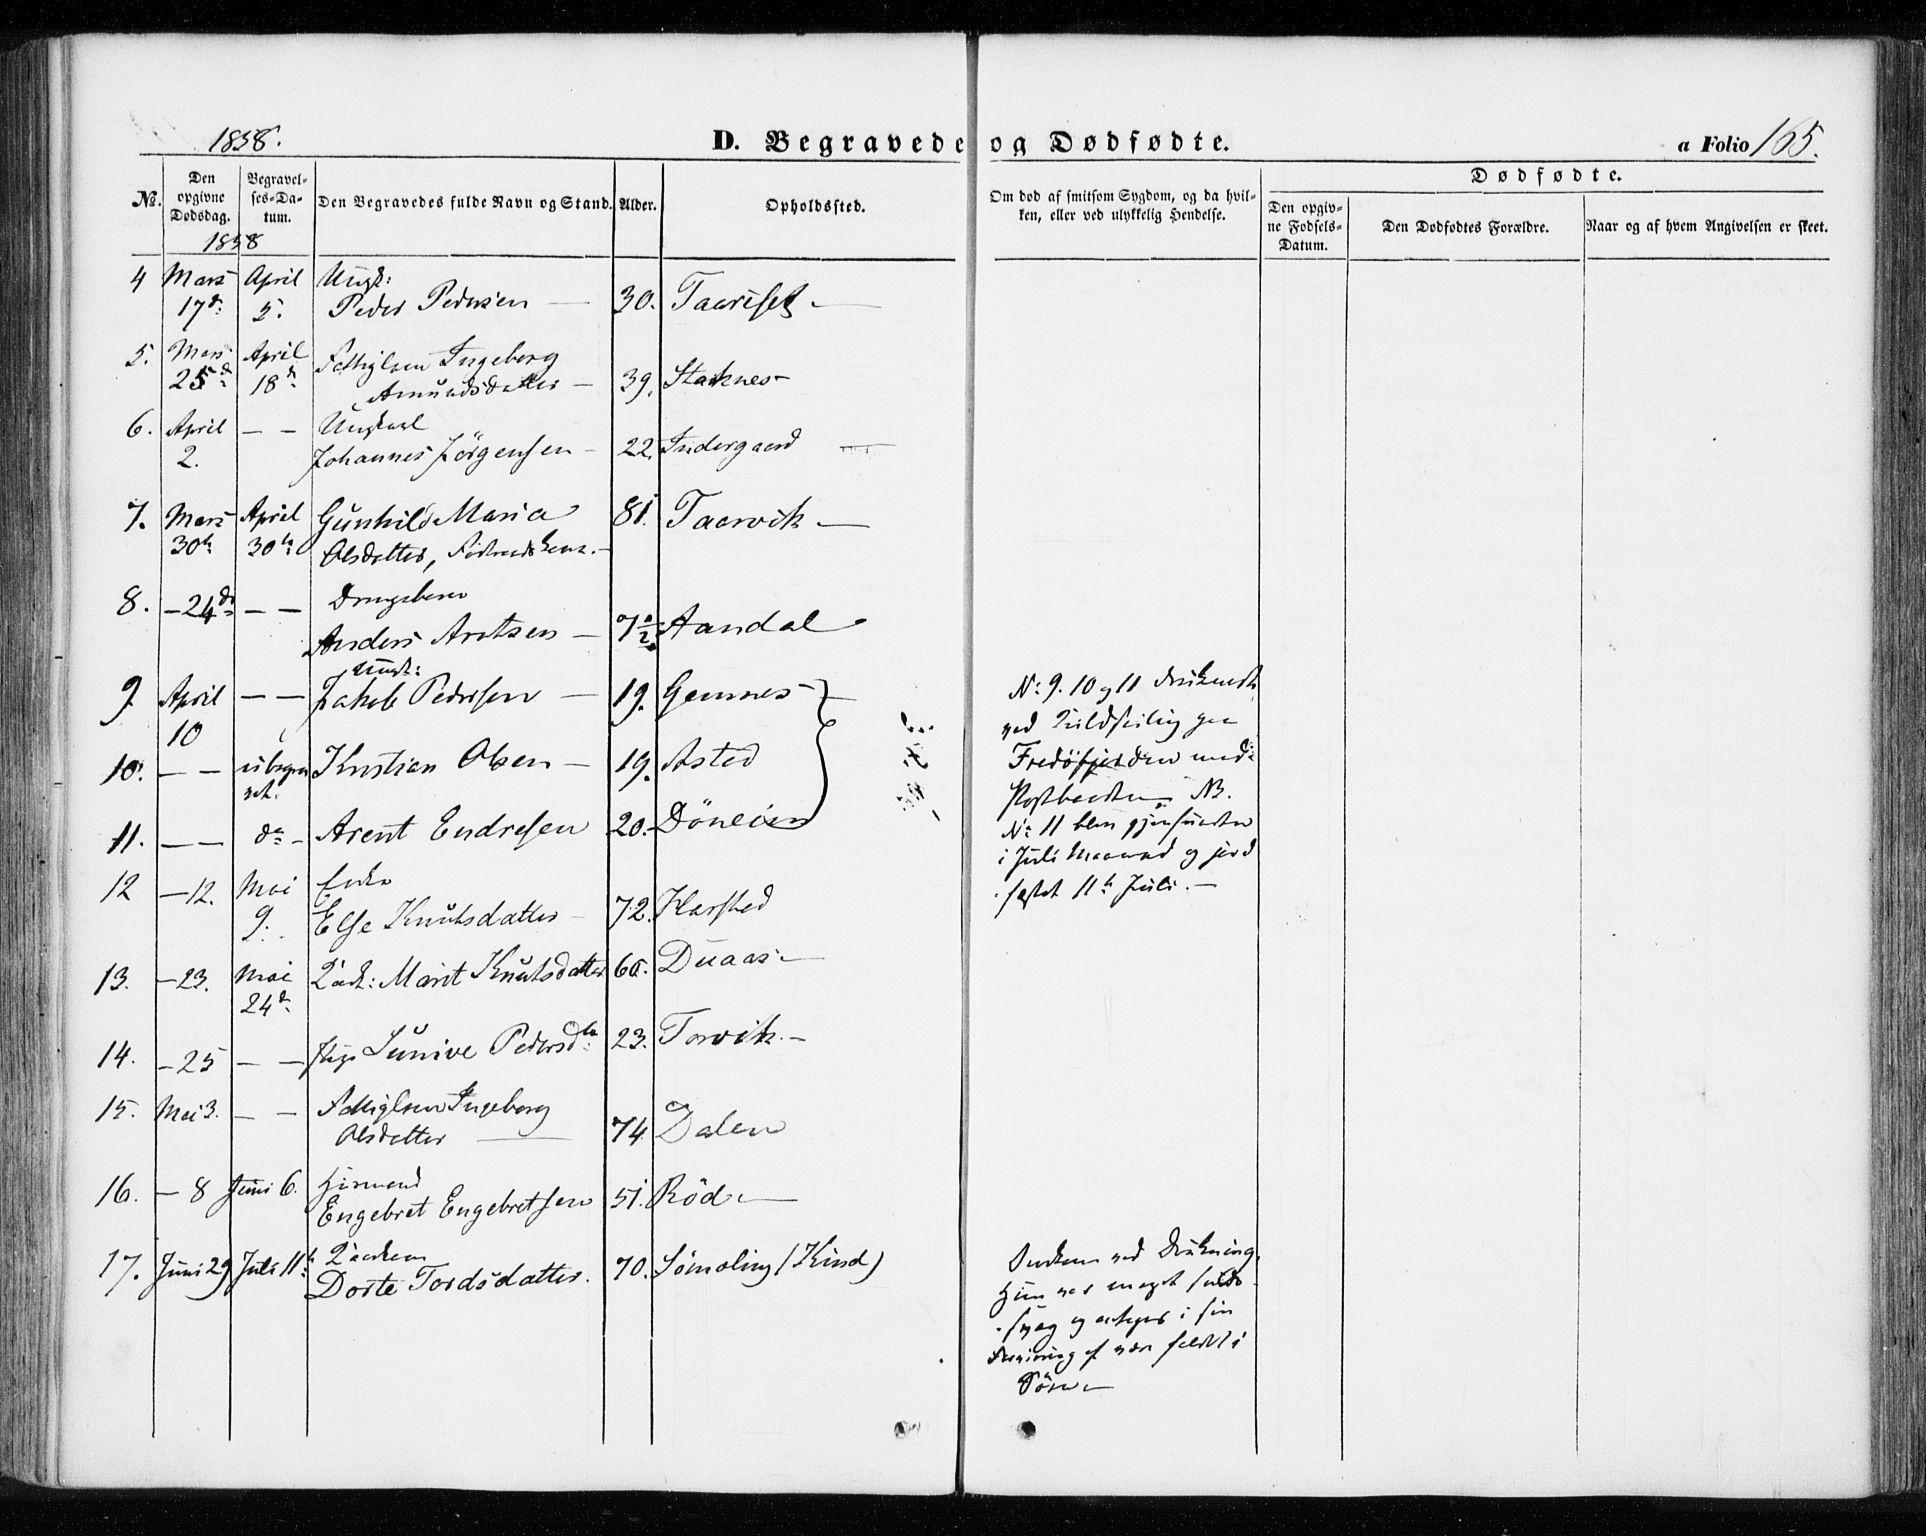 1858.
D. Begravede og Dødfødte.
a Folio 165.
No.
Den opgivne Dødsdag.
Begravelses-Datum.
Den Begravedes fulde Navn og Stand.
Alder.
Opholdssted.
Om død af smitsom Sygdom, og da hvilken, eller ved ulykkelig Hendelse.
Dødfødte.
Den opgivne Fødsels-Datum.
Den Dødfødtes Forældre.
Naar og af hvem Angivelsen er skeet.
1858
4 Mars April Ungk:
17de 5. Peder Pedersen — 30. Taariset —
5. Mars April Ingeborg
25de 18de Amundsdatter — 39.
6. April — — Ungkarl
2. Johannes Jørgensen — 22. Indergaard —
7. Mars April Gunhild Maria 81. Taarvik —
30te 30te Olsdatter,
8. — 24de — — Drengebarn
Anders Arntsen — 7½ Aandal
Ungk:
9. April — — Jakob Pedersen — 19. Gemnes —
10
10. — — ubegravet. Kristian Olsen — 19. Asted
11. — — do — Arent Endresen 20. Döneim
No 9. 10 og 11 druknede
ved
Fredöfjorden med
NB.
No 11 blev gjenfunden
i Juli Maaned og jord
fæstet 11te Juli. —
12 — 12. Mai Enke
9. Else Knutsdatter — 72. Harsted
13. — 23. Mai Marit Knutsdatter 60. Duaas —
24de
14. — 25 — — Sunive Pedersdtr 23. Torvik —
15. Mai 3. — — Ingeborg
Olsdatter — 74. Dalen
16. — 8 Juni 6. Huusmand
Engebret Engebretsen 51. Röd —
17. Juni 29 Juli 11te
Dorte Tordsdatter. 70. Sömoling (Kind)
ved Drukning.
Hun var meget
svag og i sin
af være faldt i
Söen —